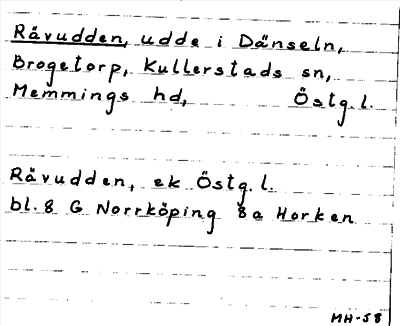 Rävudden, udde i Dänseln,
Brogetorp, Kullerstads sn,
Memmings hd, Östg.l.
Rävudden, ek Östg.l.
bl.8 G Norrköping 8a Horken
MH-58